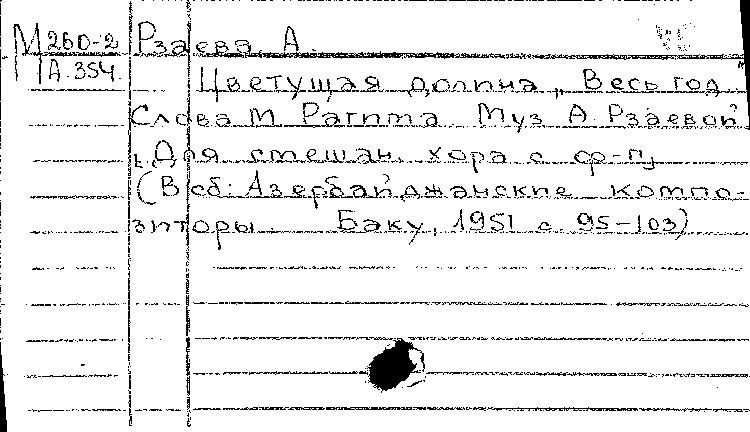 М 260-2 Рзаева. А.
А.354.
Цветущая долина „Весь год"
Слова М Рагима. Муз А. Рзаевой
[Для смешан. хора с ф-п]
(В сб: Азербайджанские компо-
зиторы. Баку, 1951 с. 95-103)